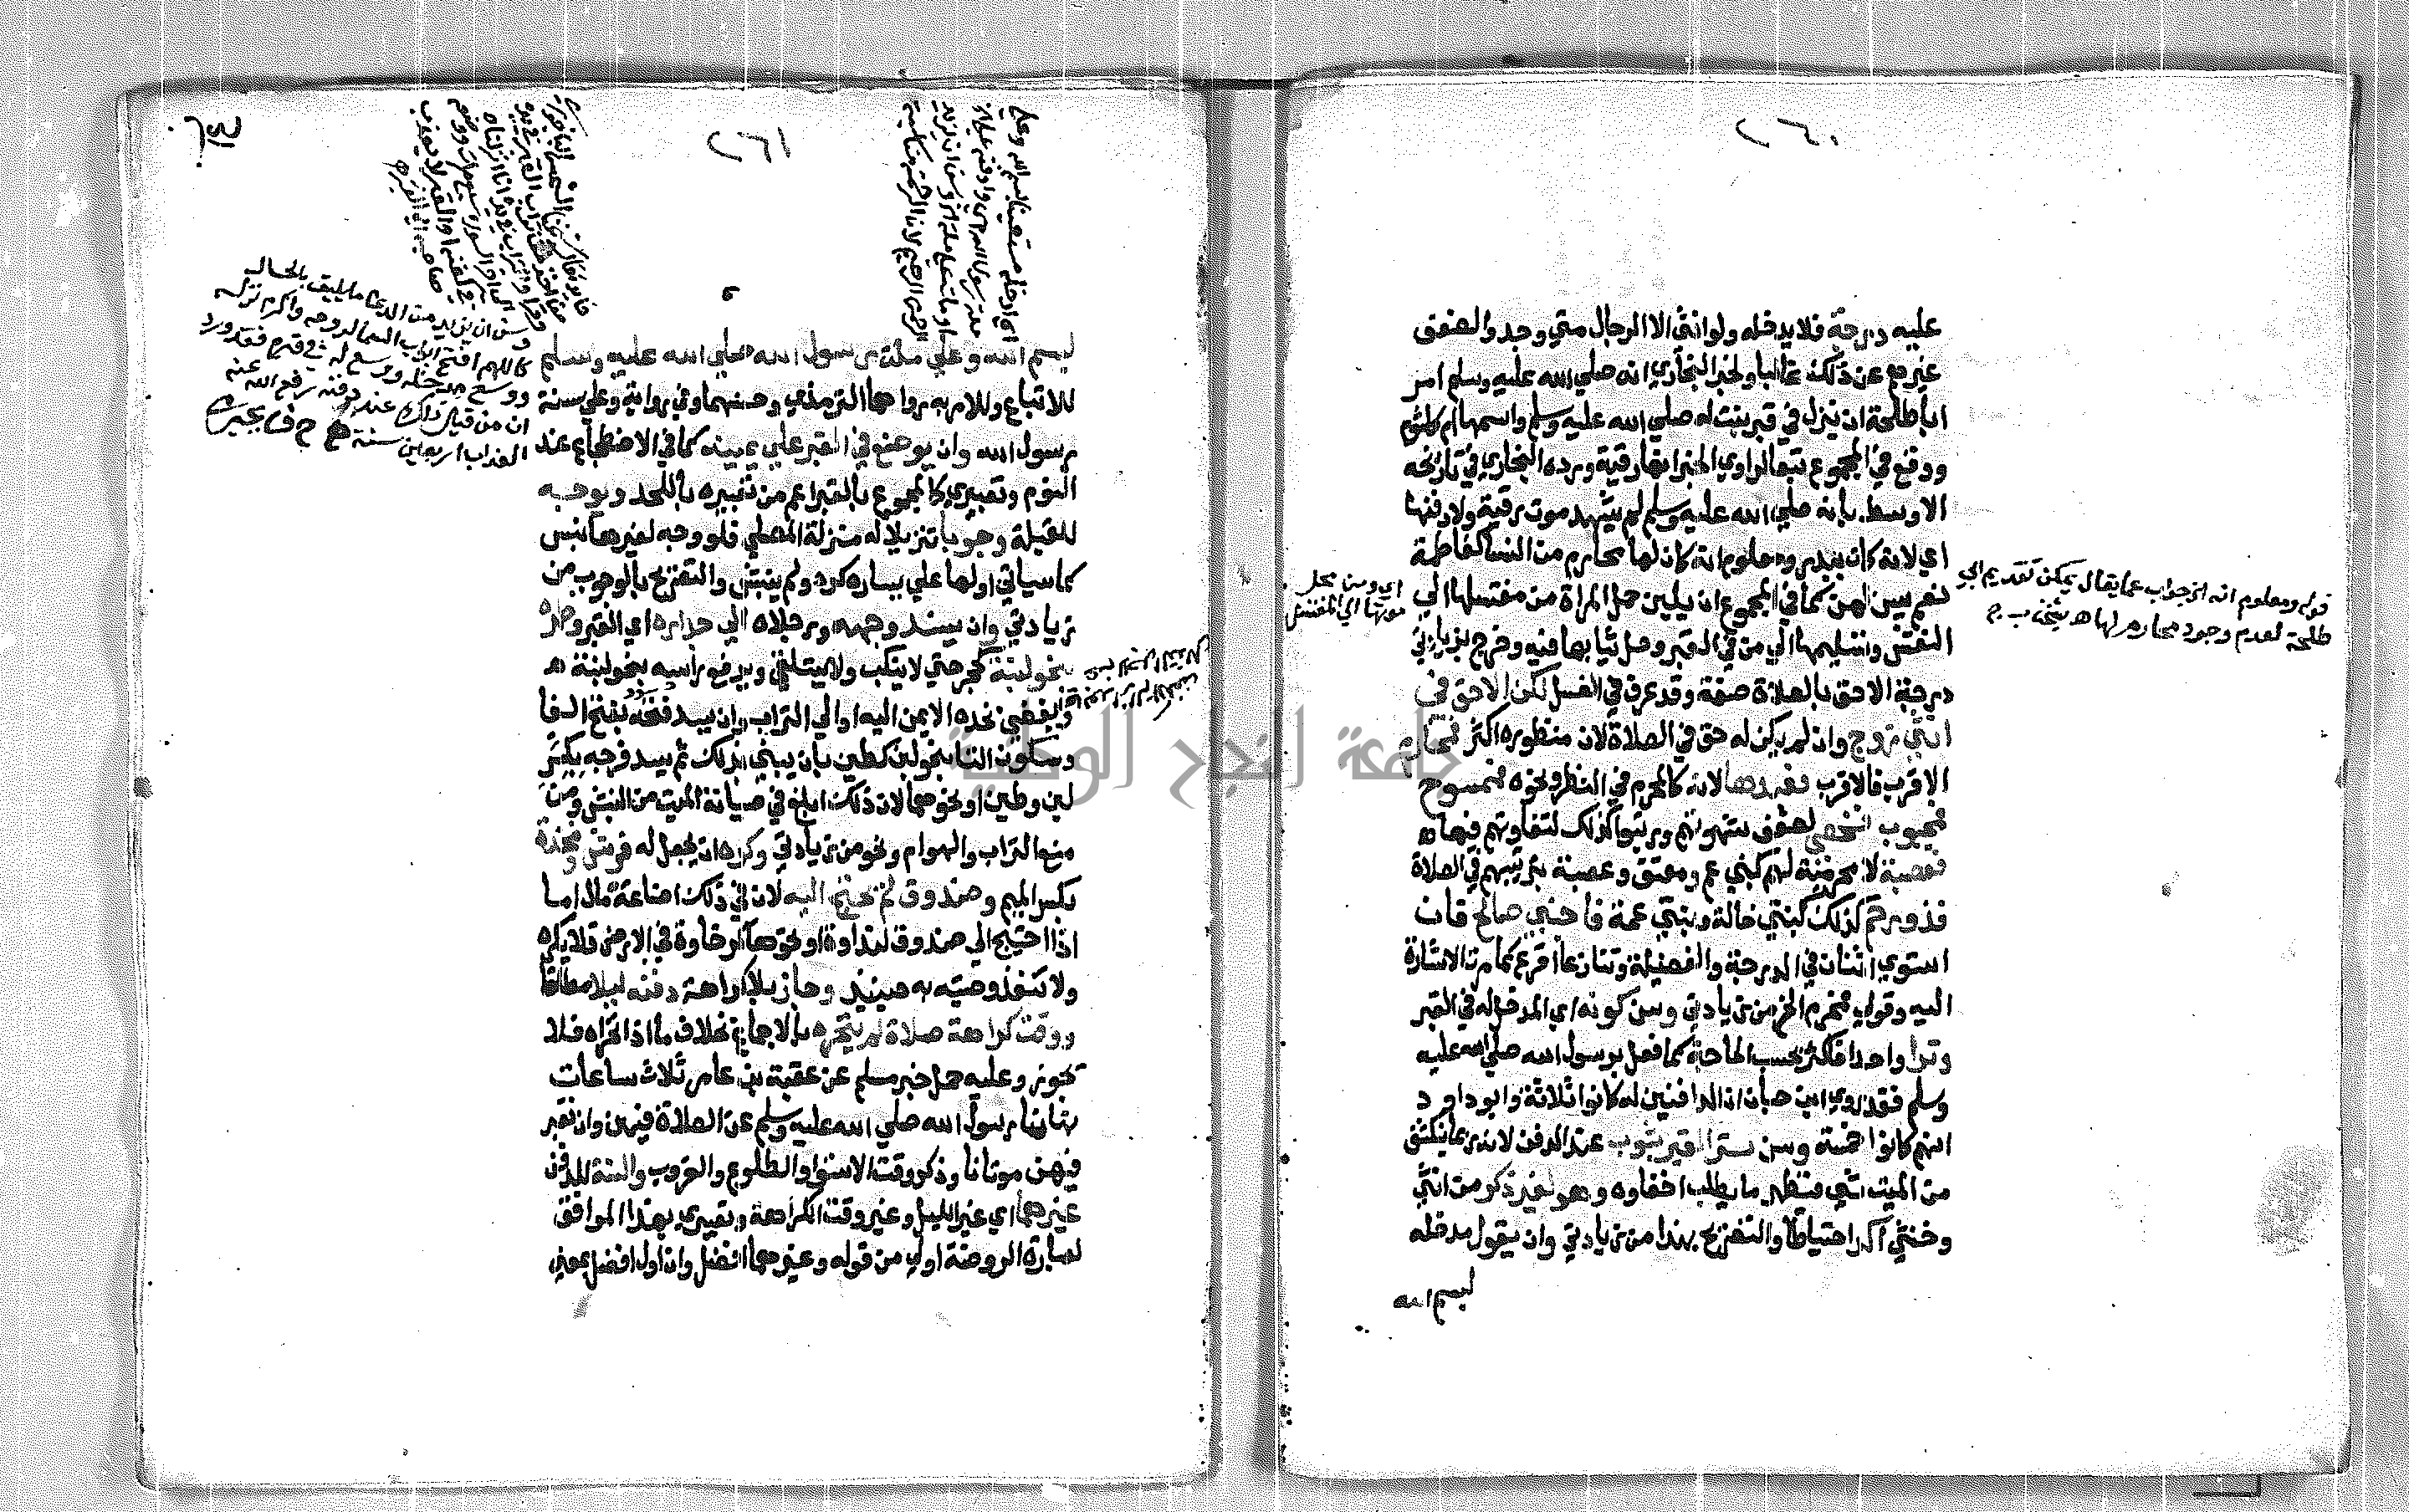 ٢٦٠
عليه درجة فلا يدخله ولو انثى الا الرجال متى وجدوا لضعف
غيرهم عن ذلك غالبا ولخبر البخاري انه صلي الله عليه وسلم امر
ابا طلحة ان ينزل في قبر بنت له صلي الله عليه وسلم واسمها ام كلثوم
ووقع في المجموع تبعا لراوي الخبر انها رقية ورده البخاري في تاريخه
الاوسط بانه صلي الله عليه وسلم لم يشهد موت رقية ولا دفنها
اي لانه كان ببدر ومعلوم انه كان لها محارم من النسا كفاطمة
نعم يسن لهن كما في المجموع ان يلين حمل المراة من مغتسلها الي
النعش وتسليمها الي من في القبر وحل ثيابها فيه وخرج بزيادتي
درجة الاحق بالصلاة صفة وقد عرف في الغسل لكن الاحق في
انثي زوج وان لم يكن له حق في الصلاة لان منظوره اكثر فمحارم
الاقرب فالاقرب فعبدها لانه كالمحرم في النظر ونحوه فممسوح
فمجبوب فخصي لضعف شهوتهم ورتبوا كذلك لتفاوتهم فيها
فعصبة لا محرمية لهم كبني عم ومعتق وعصبة بترتيبهم في الصلاة
فذو رحم كذلك كبني خالة وبني عمة فاجنبي صالح فان
استوي اثنان في الدرجة والفضيلة وتنازعا اقرع كما مرت الاشارة
اليه وقولي فمحرم الخ من زيادتي وسن كونه اي المدخل له في القبر
وترا واحدا فاكثر بحسب الحاجة كما فعل برسول الله صلي الله عليه
وسلم فقد روي ابن حبان ان الدافنين له كانوا ثلاثة وابو داود
انهم كانوا خمسة وسن ستر القبر بثوب عند الدفن لانه ربما ينكشف
من الميت شي فيظهر ما يطلب اخفاوه وهو لغير ذكر من انثي
وخنثي آكد احتياطا والتصريح بهذا من زيادتي وان يقول مدخله
بسم الله
قوله ومعلوم انه الخ جواب عما يقال يمكن تقديم ابي
طلحة لعدم وجود محارم لها هـ شيخنا ب ج
اي وسن محل
موتها الي المغتسل
٢٦١
بسم الله وعلي ملة رسول الله صلي الله عليه وسلم
للاتباع وللامر به رواهما الترمذي وحسنهما وفي رواية وعلي سنة
رسول الله وان يوضع في القبر علي يمينه كما في الاضطجاع عند
النوم وتعبيري كالمجموع بالقبر اعم من تعبيره باللحد ويوجه
للقبلة وجوبا تنزيلا له منزلة المصلي فلو وجه لغيرها نبش
كما سياتي او لها علي يساره كره ولم ينبش والتصريح بالوجوب من
زيادتي وان يسند وجهه ورجلاه الي جداره اي القبر وظهره
بنحو لبنة كحجر حتي لا ينكب ولا يستلقي ويرفع راسه بنحو لبنة
ويفضي بخده الايمن اليه او الي التراب وان يسد فتحه بفتح الفا
وسكون التا بنحو لبن كطين بان يبني بذلك ثم يسد فرجه بكسر
لبن وطين او نحوهما لان ذلك ابلغ في صيانة الميت من النبش ومن
منع التراب والهوام ونحو من زيادتي وكره ان يجعل له فرش ومخدة
بكسر الميم وصندوق لم يحتج اليه لان في ذلك اضاعة مال اما
اذا احتيج الي صندوق لنداوة او نحوها كرخاوة في الارض فلا يكره
ولا تنفذ وصيته به حينئذ وجاز بلا كراهة دفنه ليلا مطلقا
ووقت كراهة صلاة لم يتحره بالاجماع بخلاف ما اذا تحراه فلا
يجوز وعليه حمل خبر مسلم عن عقبة بن عامر ثلاث ساعات
نهانا رسول الله صلي الله عليه وسلم عن الصلاة فيهن وان نقبر
فيهن موتانا وذكر وقت الاستوا والطلوع والغروب والسنة للدفن
غيرهما اي غير الليل وغير وقت الكراهة وتعبيري بهذا الموافق
لعبارة الروضة اولي من قوله وغيرهما افضل وان اول افضل بمعني
وسن ان يزيد من الدعا ما يليق بالحال
كاللهم افتح ابواب السما لروحه واكرم نزله
ووسع مدخله ووسع له في قبره فقد ورد
ان من قيل ذلك عند دفنه رفع الله عنه
العذاب اربعين سنة